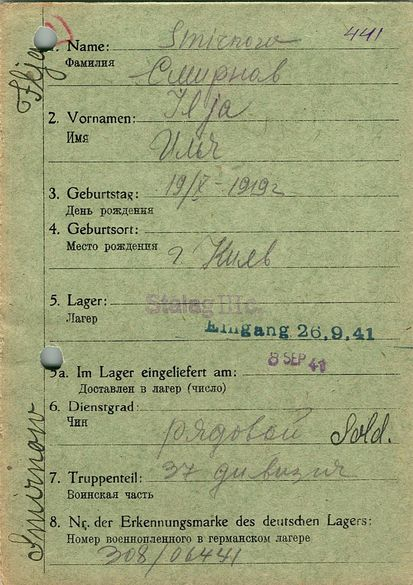 Ilja
1. Name: Smirnow 441
Фамилия Смирнов
2. Vornamen: Ilja
Имя Илья
3. Geburtstag: 19/X-1919г
День рождения
4. Geburtsort:
Место рождения г Киев
5. Lager: Stalag III c.
Лагер
Eingang 26.9.41
8 SEP 41
5a. Im Lager eingeliefert am:
Доставлен в лагер (число)
6. Dienstgrad:
Чин рядовой Sold.
7. Truppenteil: 37 дивизия
Воинская часть
8. Nr. der Erkennungsmarke des deutschen Lagers:
Номер военнопленного в германском лагере
308/06441
Smirnow